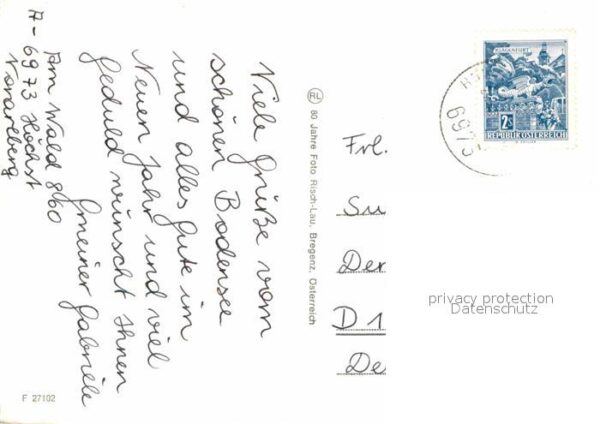 A-6973 Höchst
Vorarlberg
Am Wald 860
Viele Grüße vom
schönen Bodensee
und alles gute im
Neuen Jahr und viel
geduld wünscht Ihnen
Gmeiner Gabriele
F 27102
RL 80 Jahre Foto Risch-Lau, Bregenz, Österreich
KLAGENFURT
2S
REPUBLIK ÖSTERREICH
6973
Frl.
Su
Der
D 1
De
privacy protection
Datenschutz